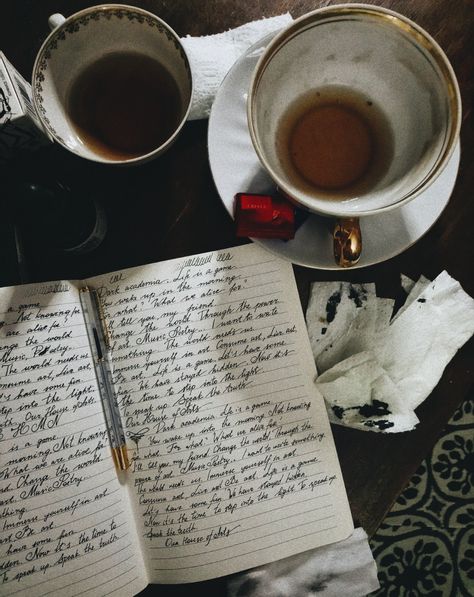 n a game.
Not knowing
are alive for"
change the
Music, Poetry...
world needs
ne art, live art.
s have some fun.
step into the
truth.
Our House of Arts.
is a game.
morning. Not
What we are alive for.
friend. Change the world
art. Music. Poetry...
Immerse yourself in art
Be art.
have some fun.
hidden. Now it's the time to
To speak up. Speak the truth.
Dark academia. Life is a game.
wake up in the morning.
what?" "What we alive for"
tell you my friend.
change the world. Through the power
Music, Poetry... I want to write
something. The world needs us.
Immerse yourself in art. Consume art, live art,
Be art. Life is a game. Let's have some
fun. We have stayed hidden. Now it's
the time. To step into the light.
To speak up. Speak the truth.
Our House of Arts
Dark academia. Life is a game.
You wake up in the morning. Not knowing
For what? What we alive for.
I'll tell you my friend. Change the world. Through the
power of art. Music. Poetry. I want to write something.
The world needs us. Immerse yourself in art.
Consume art. Live art. Be art. Life is a game.
Let's have some fun. We have stayed hidden.
Now it's the time to step into the light. To speak up.
Speak the truth.
Our House of Arts